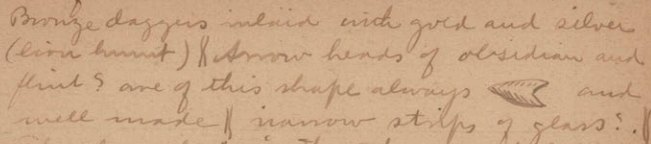 Bronze daggers inlaid with gold and silver
(lion hunt) || Arrow heads of obsidian and
flint? are of this shape always and
well made || narrow strips of glass?. ||